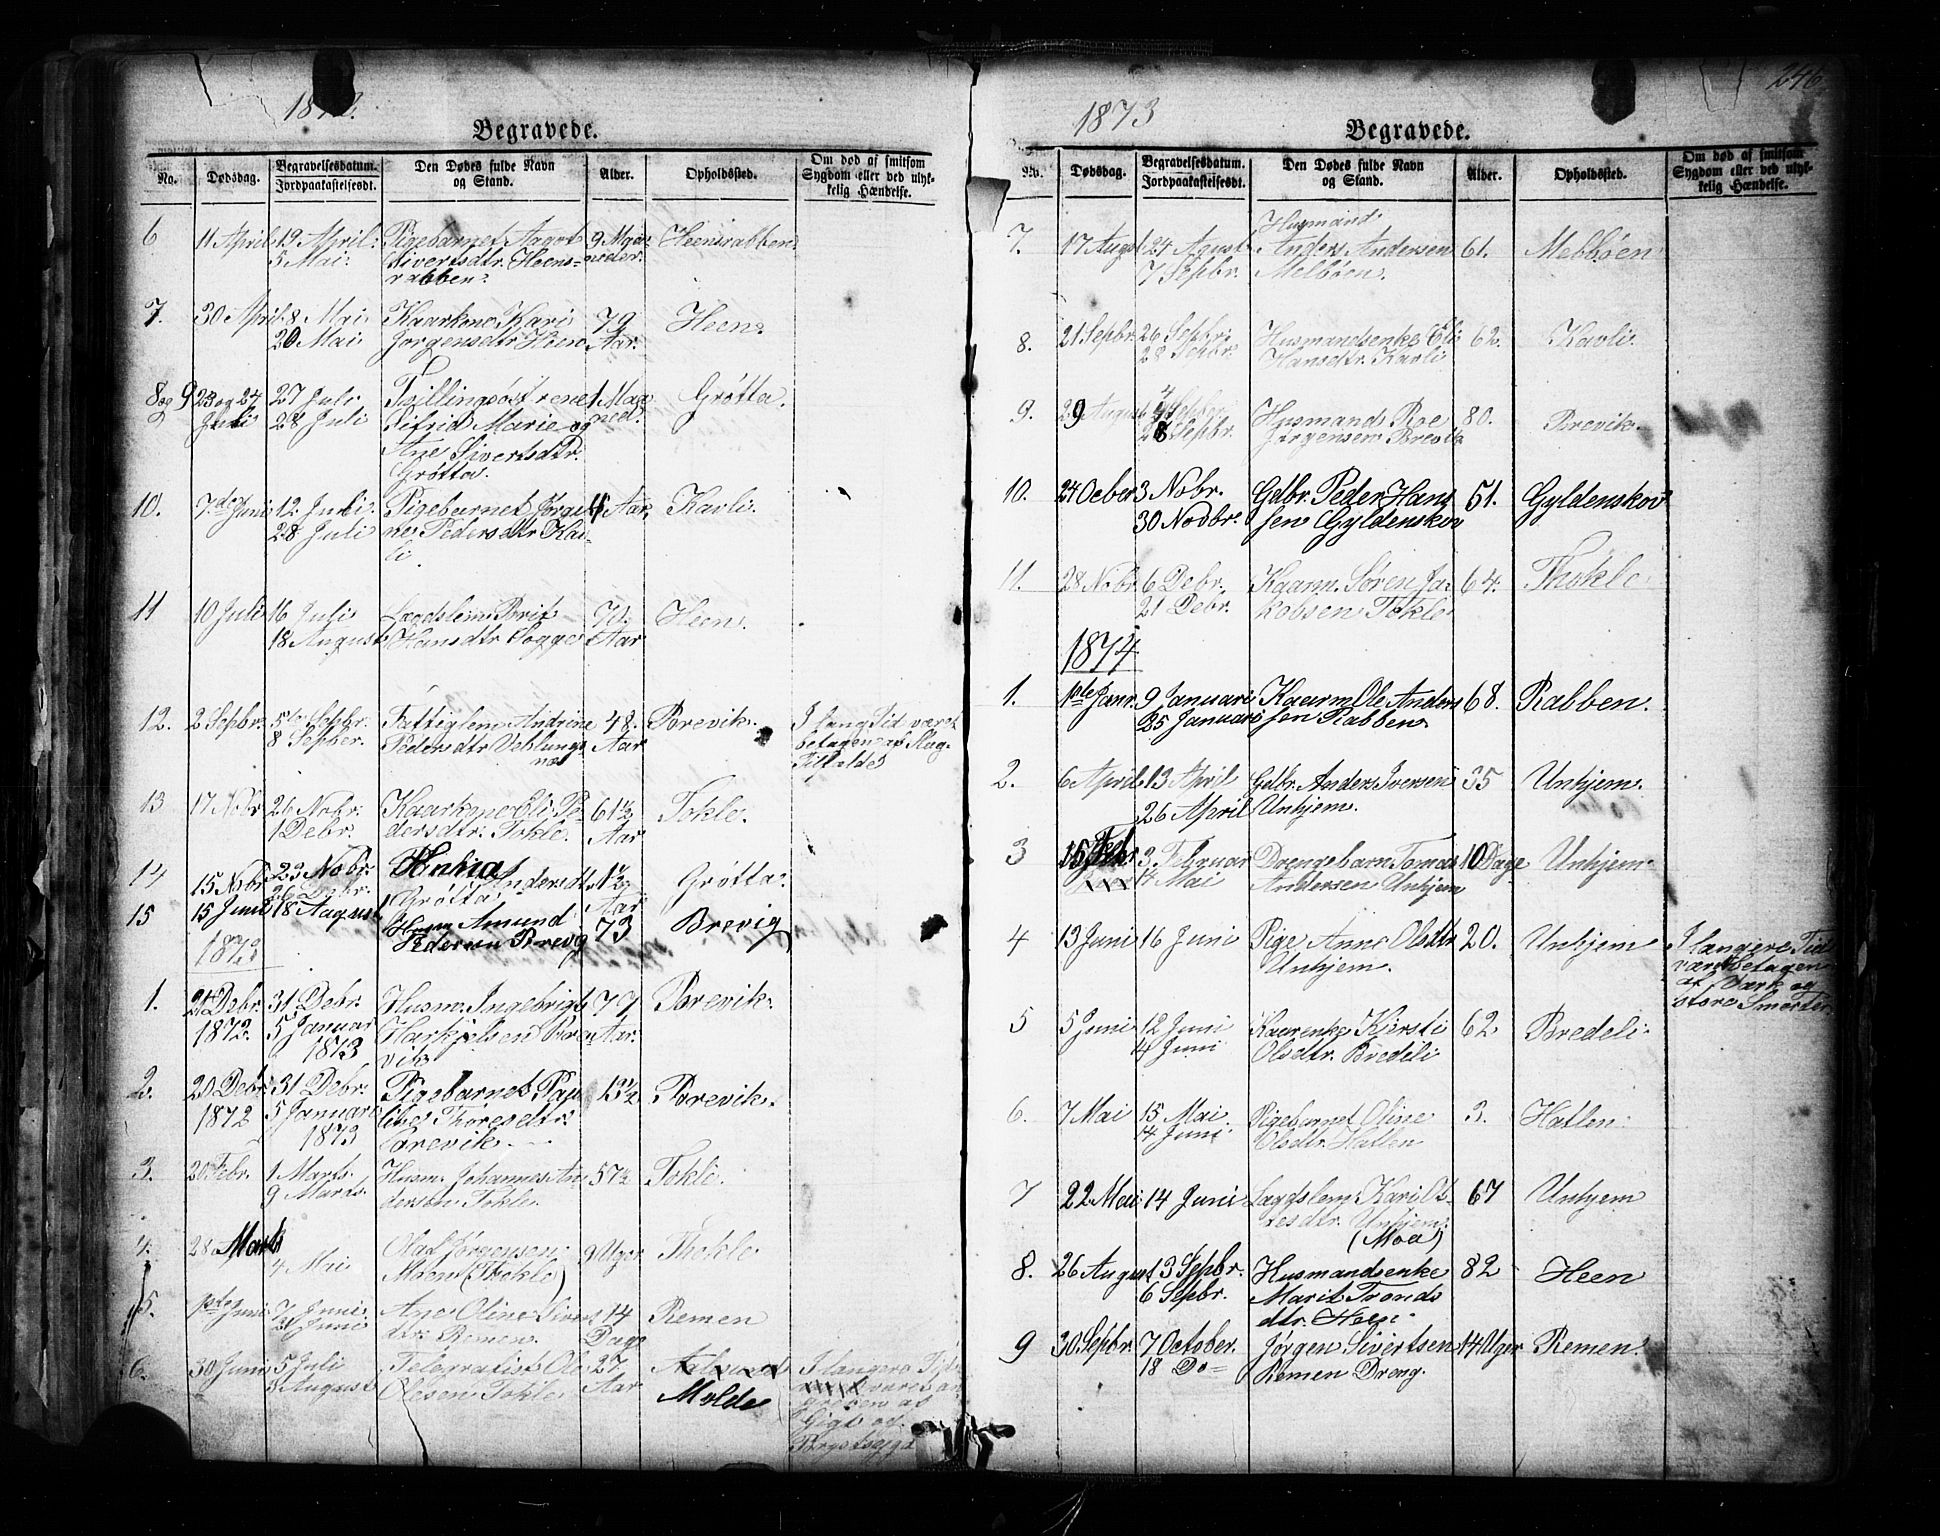 1872.
Begravede.
No.
Dødsdag.
Begravelsesdatum.
Jordpaakastelsesdt.
Den Dødes fulde Navn
og Stand.
Alder.
Opholdssted.
Om død af smitsom
Sygdom eller ved ulyk-
kelig Hændelse.
6 11 April 19 April Pigebarnet Aagot 9 Maa- Heensrabben
5 Mai. Sivertsdtr. Heens- neder.
rabben.
7. 30 April 8 Mai Kaarkone Kari 79 Heen.
20 Mai Jørgensdtr Heen Aar.
8 og 9 23 og 24 27 Juli Tvillingøstrene 1 Maa- Grøtta.
Juli 28 Juli Sifrid Marie og ned.
Ane Sivertsdtr.
Grøtta.
10. 7de Juni 12 Juli Pigebarnet Jørgi- 4 Aar. Kavli.
28 Juli ne Pedersdtr Kav-
li.
11 10 Juli 16 Juli Lægdslem Brit Heen.
18 August Hansdtr Sogge Aar
12. 2 Sepbr. 5te Sepbr. Fattiglem Andrine 48. Brevik. I lang Tid været
8 Sepber. Pedersdtr Veblungs- Aar betagen af Slag-
næs Tilfælde
13 17 Nobr 26 Nobr. Kaarkone Eli Pe- 61½ Tokle.
1 Debr. dersdtr. Tokle. Aar
14 15 Nobr 23 Nobr. Andersdt. 1½ Grøtta.
26 Debr. Grøtta Aar
15 15 Juni 18 August Husm Amund 73 Brevig
Pedersen Brevig
1873
1. 21 Debr. 31 Debr. Husm. Ingebrigt 77 Brevik.
1872. 5 Januar Harkjelsen Bre- Aar.
1873 vik
2. 20 Debr. 31 Debr. Pigebarnet 13½ Brevik.
1872 5 Januar Thoresdtr.
1873 Brevik
3. 20 Febr. 1 Marts Husm. Johannes An- 57½ Tokle.
9 Marts. dersen Tokle.
4. 28 Marts Olad Jørgensen 9 Uger Thokle
4 Mai Moen (Thokle)
5. 1ste Juni 7 Juni Ane Oline Sivers 14 Remen
Juni dtr. Remen. Dage
6. 30 Juni 5 Juli Telegrafist Ole 27. I længere Tid
3 August Olsen Tokle Aar Molde været an-
greben af
Gigt og
Brystsyge

246.
1873
Begravede.
No.
Dødsdag.
Begravelsesdatum.
Jordpaakastelsesdt.
Den Dødes fulde Navn
og Stand.
Alder.
Opholdssted.
Om død af smitsom
Sygdom eller ved ulyk-
kelig Hændelse.
Husmand
7. 17 Augst 24 Agust Anders Andersen 61. Melbøen
7 Sepbr. Melbøen.
8. 21 Sepbr. 26 Sepbr. Husmandsenke Eli 62. Kavli.
28 Sepbr. Hansdtr. Kavli
9. 29 August 4 Sepbr. Husmand Roe 80. Brevik.
28 Sepbr. Jørgensen Brevik
10. 24 Ocber 3 Nobr. Gdbr. Peder Han- 51. Gyldenskov
30 Nodbr. sen Gyldenskov
11. 28 Nobr. 6 Debr. Kaarm. Søren Ja- 64. Thokle
21 Debr. kobsen Tokle
1874
1. 1ste Janr. 9 Januari Kaarm Ole Anders 68. Rabben.
25 Januari sen Rabben.
2. 6 April 13 April Gdbr. Anders Iversen 35 Unhjem.
26 April Unhjem.
3 15 Febr 3 Februar Drengebarn Tomas 10 Dage Unhjem.
14 Mai Andersen Unhjem
4 13 Juni 16 Juni Pige Anne Olsdtr 20. Unhjem I længere Tid
Unhjem. været betagen
af Værk og
store Smerter
5 5 Juni 12 Juni Kaarenke Kjersti 62 Bredeli.
14 Juni Olsdtr. Bredeli
6. 7 Mai 15 Mai Pigebarnet Oline 3. Hatlen.
14 Juni. Olsdtr. Hatlen
7 22 Mai 14 Juni Lægdslem Kari Ol- 67 Unhjem
Unhjem.
(Moa)
8. 26 August 3 Sepbr. Husmandsenke 82 Heen
6 Sepbr. Marit Tronds
dtr. Heen.
9 30 Sepbr. 7 October. Jørgen Sivertsen 14 Uger Remen
18 Do Remen Dreng.